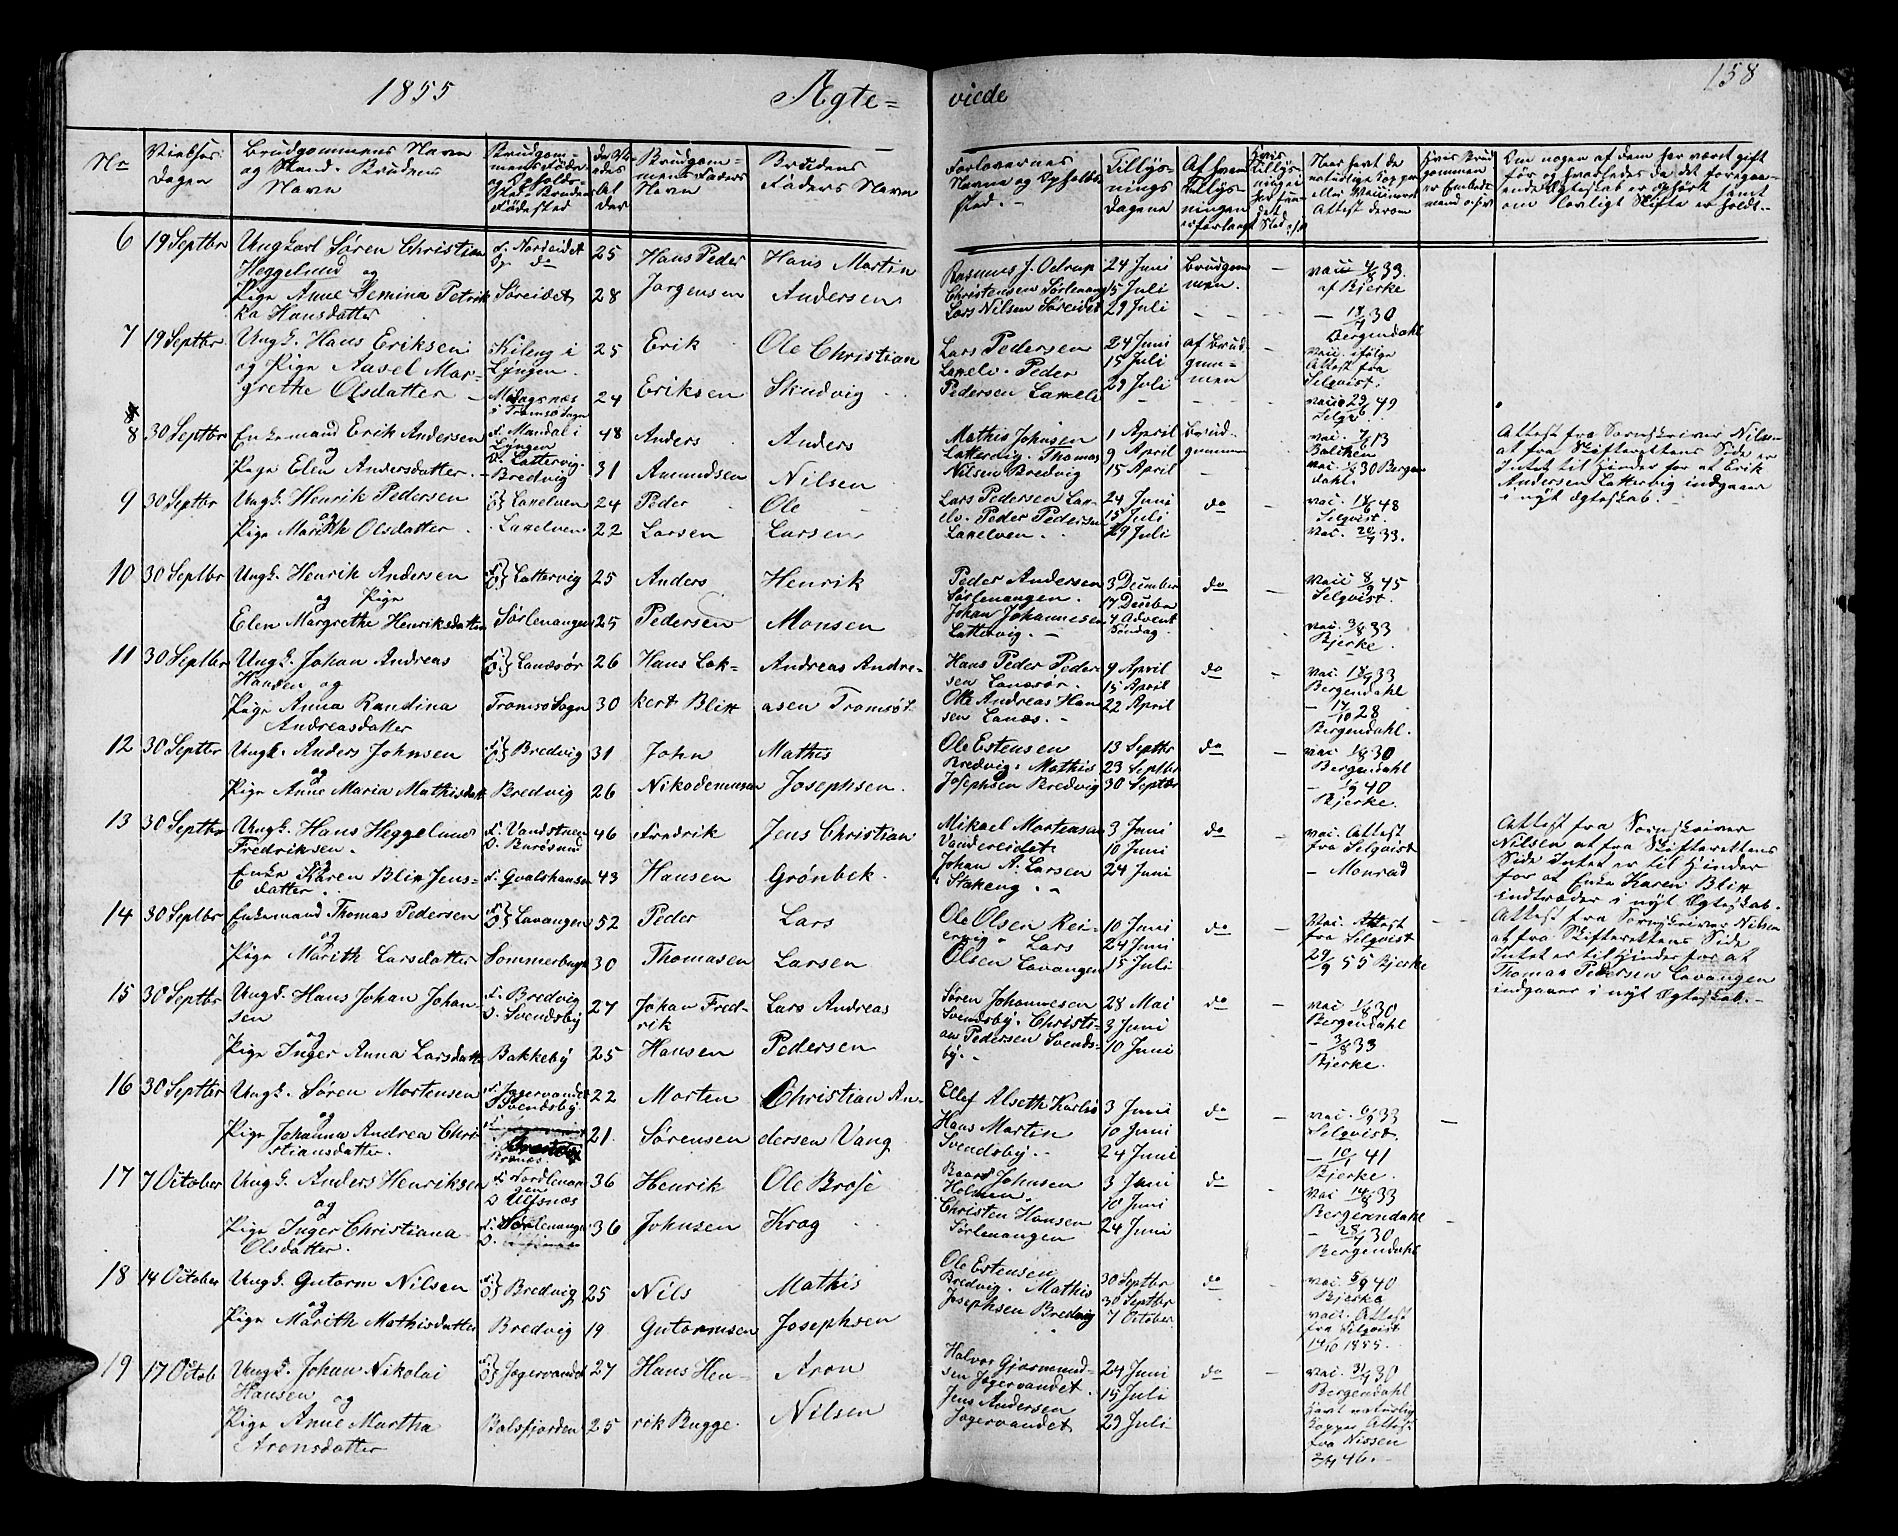 1855 Ægte= viede 158
Nr
Vielses-
dagen
Brudgommens Navn
og Stand. Brudens
Navn
Brudgom=
mens Faders
Navn
Brudens
Faders Navn
Forlovernes
Navne og Opholds
sted.
Tillys=
nings
dagene
Af hvem
Tillys-
ningen
er forlangt
Om nogen af dem har været gift
før og hvorledes da det foregaa-
ende Ægteskab er ophørt samt
om lovligt Skifte er holdt.
6 19 Septbr Ungkarl Søren Christian
Heggelund og
Pige Anne Jemina Petrik
ka Hansdatter
Nordeidet
do
Søreidet
25
28
Hans Peder
Jørgensen
Hans Martin
Andersen
Rasmus J. Odrup
Christensen Sørlenang
Lars Nilsen Søreidet
24 Juni
15 Juli
29 Juli
Brudgom
men.
vac 4/8 33.
af Bjerke
30
Bergendahl
7 19 Septbr Ungk. Hans Eriksen
og Pige Aasel Mar-
grethe Olsdatter
Kileng i
Lyngen.
i Tromsø Sogn
25
24
Erik
Eriksen
Ole Christian
Skudvig
Lars Pedersen
Laxelv. Peder
Pedersen Laxelv
24 Juni
15 Juli
29 Juli
af Brud-
gom-
men
vacc. ifølge
Attest fra
Selqvist.
8 30 Septbr Enkemand Erik Andersen
og
Pige Elen Andersdatter.
F. Mandal i
Lyngen
O. Lattervig.
Bredvig
48
31
Anders
Aamundsen
Anders
Nilsen
Mathis Johnsen
Lattervig. Thomas
Nilsen Bredvig
1 April
9 April
15 April
Brud-
gommen
Attest fra Sorenskriver Nils-
at fra Skifterettens Side er
Intet til Hinder for at Erik
Andersen Latterbig indgaaer
i nyt Ægteskab.
9 30 Septbr Ungk. Henrik Pedersen
og
Pige Marith Olsdatter
Laxelven
Laxelven
24
22
Peder
Larsen
Ole
Larsen
Lars Pedersen Lax-
elv. Peder Pedersen
Laxelven.
24 Juni
15 Juli
29 Juli
do
Selqvist.
10 30 Septbr Ungk. Henrik Andersen
og Pige
Elen Margrethe Henriksdatter
Lattervig
Sørlenangen
25
25
Anders
Pedersen
Henrik
Monsen
Peder Andersen
Sørlenangen.
Johan Johannesen
Lattervig.
3 December
17 December
4 Advent
Søndag
do
vacc 8/9 45
Selqvist.
Bjerke
11 30 Septbr Ungk. Johan Andreas
Hansen og
Pige Anna Randina
Andreasdatter
Lanæsør
Tromsø Sogn
26
30
Hans Lok-
kert Blix
Andreas Andre-
asen Tromsø
Hans Peder Peder
sen Lanæsør.
Otte Andreas Han
sen Lanæs.
9 April
15 April
22 April
do
Bergendahl
Bergendahl.
12 30 Septbr Ungk. Anders Johnsen
og
Pige Anne Maria Mathisdatt
Bredvig
Bredvig
31
26
John
Nikodemusen
Mathis
Josephsen.
Ole Estensen
Bredvig. Mathis
Josephsen Bredvig
13 Septbr
23 Septbr
30 Septbr
do
Bergendahl
Bjerke.
13 30 Septbr Ungk. Hans Heggelund
Fredriksen.
og
Enke Karen Blix Jens-
datter.
46
43
Fredrik
Hansen
Jens Christian
Grønbek.
Mikael Mortensen
Vandereidet
Johan A. Larsen
Stakeng.
3 Juni
10 Juni
24 Juni
do
vac. Attest
fra Selqvist
Monrad
Attest fra Sorenskriver
Nilsen at fra Skifterettens
Side Intet er til Hinder
for at Enke Karen Blix
indtræder i nyt Ægteskab.
14 30 Septbr Enkemand Thomas Pedersen
og
Pige Marith Larsdatter
Lavangen
52
30
Peder
Thomasen
Lars
Larsen
Ole Olsen Rei-
ervig. Lars
Olsen Lavangen
10 Juni
24 Juni
15 Juli
do
Vac. Attest
fra Selqvist
29/9 55 Bjerke
Attest fra Sorenskriver Nilsen
at fra Skifterettens Side
Intet er til Hinder for at
Thomas Pedersen Lavangen
indgaaer i nyt Ægteskab.
15 30 Septbr Ungk. Hans Johan Johan
sen
og
Pige Inger Anna Larsdatt
F. Bredvig
O. Svendsby
Bakkeby
27
25
Johan Fred-
rik
Hansen
Lars Andreas
Pedersen
Søren Johannesen
Svendsby. Christi-
an Pedersen Svends-
by.
28 Mai
3 Juni
10 Juni
do
Bergendahl
Bjerke.
16 30 Septbr Ungk. Søren Mortensen
og
Pige Johanna Andrea Chri
stiansdatter.
Jægervandet
Svendsby.
22
21
Morten
Sørensen
Christian An-
dersen Vang
Ellef Alseth Karlsø
Hans Martin
Svendsby.
3 Juni
10 Juni
24 Juni
do
vac. 6/9 33
Selqvist.
Bjerke.
17 7 October Ungk. Anders Henriksen
og
Pige Inger Christiana
Olsdatter.
F. Nordlenan
gen
O. Ulfsnæs
F. Sørlenangen
36
36
Henrik
Johnsen
Ole Brose
Krog
Baard Johnsen
Holmen.
Christen Hansen
Sørlenangen
3 Juni
10 Juni
24 Juni
do
Bergendahl
Bergendahl
18 14 October Ungk. Gutorm Nilsen
og
Pige Marith Mathisdatter
Bredvig
Bredvig
25
19
Nils
Gutormsen
Mathis
Josephsen
Ole Estensen
Bredvig. Mathis
Josephsen Bredvig
30 Septbr
30 Septbr
7 October
do
Bjerke
vac. Attest
fra Selqvist
14/10 1855.
19 17 Octob Ungk. Johan Nikolai
Hansen og
Pige Anne Martha
Aronsdatter
Jægervandet
Balsfjorden
27
25
Hans Hen-
rik Bugge.
Aron
Nilsen
Halvor Gjørmund-
sen Jægervandet.
Jens Andersen
Jægervandet
24 Juni
15 Juli
29 Juli
do
Bergendahl
havt naturlig
Kopper Attest
fra Nissen